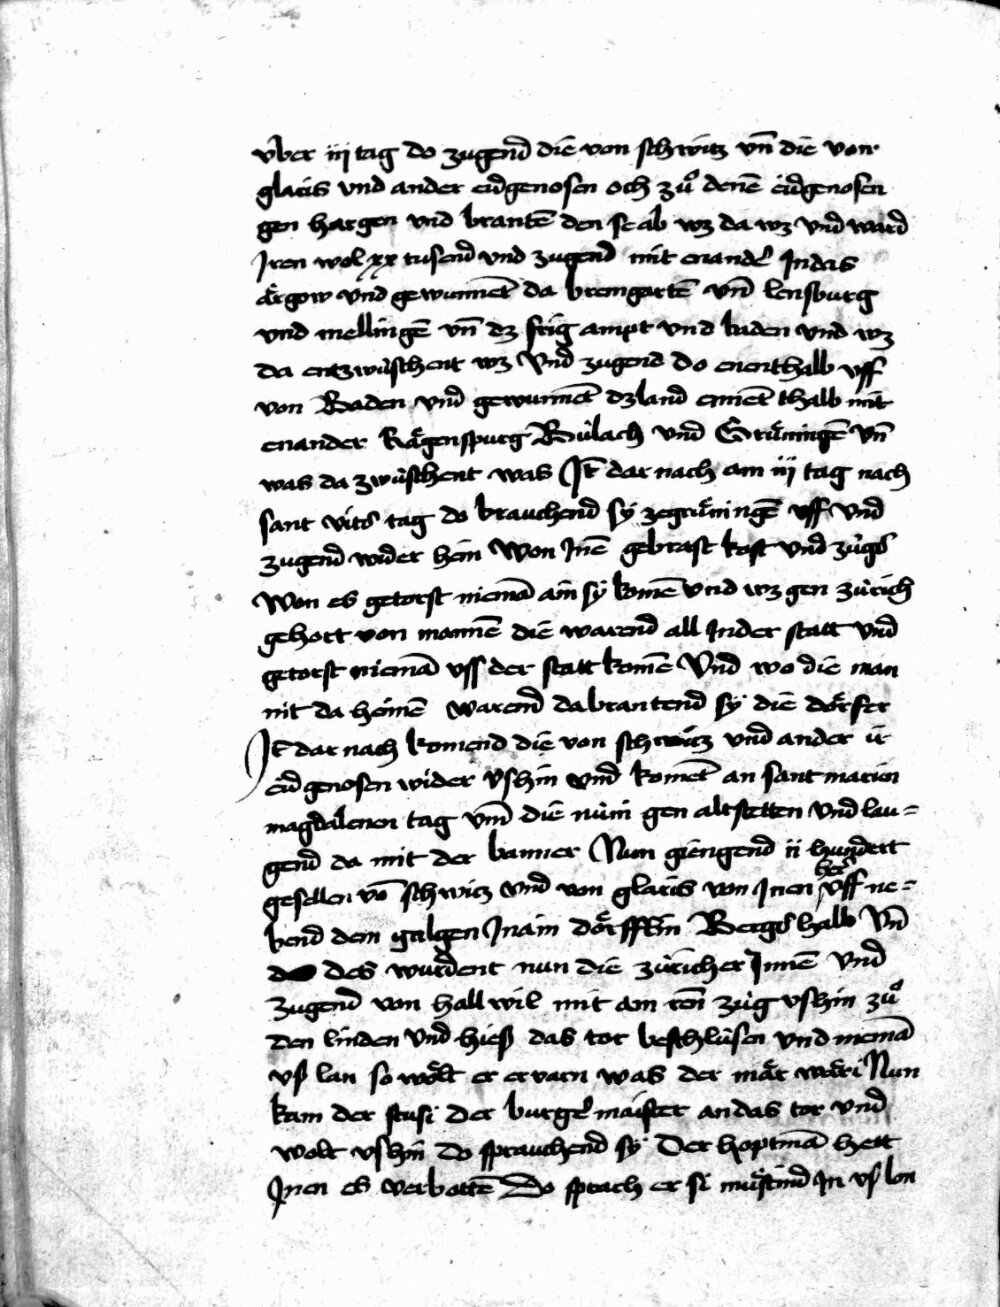 vber iij tag do zugend die von schwitz vn̄ die von
glaris vnd ander eidgenosen och zů denē eidgenosen
gen hargen vnd brantē den se ab wz da wz vnd ward
Iren wol xx tusend vnd zugend mit enandeʳ In das
ärgow vnd gewunnēt da bremgartē vn̄ lensburg
vnd mellingē vn̄ dz frig ampt vnd baden vnd wz
da entzwüschent wz vnd zugend do enenthalb vff
von Baden vnd gewunnēt dz land ennēthalb mit
enander Rägenspurg Bülach vnd Grüningē vn̄
was da zwüschent was It̄ dar nach am iij tag nach
sant vits tag do brauchend sy ze grüningē vff vnd
zugend wider hein Won Inē gebrast kost vnd zügs
Won es getorst niemā ain sy komē vnd wz gen zürich
gehort von mannē die warend all In der statt vnd
getorst niemā vss der statt komē Vnd wo die man
nit da heimē warend da brantend sy die dörfer
It̄ dar nach komend die von schwitz vnd ander ir
eidgenosen wider vshin vnd komēt an sant marien
magdalenen tag vm̄ die nüni gen altstetten vnd lau-
gend da mit der banner Nun giengend ii hundert
gesellen vō schwitz vnd von glaris von Inen her vff ne-
bend dem galgen In ain dörfflin Bergs halb vn̄
des wurdent nun die züricher Innē vnd
zugend von hallwil mit am ren züg vshin zů
den linden vnd hiess das tor beschlüsen vnd niemā
vs lan so wölt er ervarn was der mär wäri Nun
kam der stusi der burgeʳmaister an das tor vnd
wolt vshin do sprauchend sy Der hoptmā hett
Inen es verbottē Do sprach er si müstind In vs lon